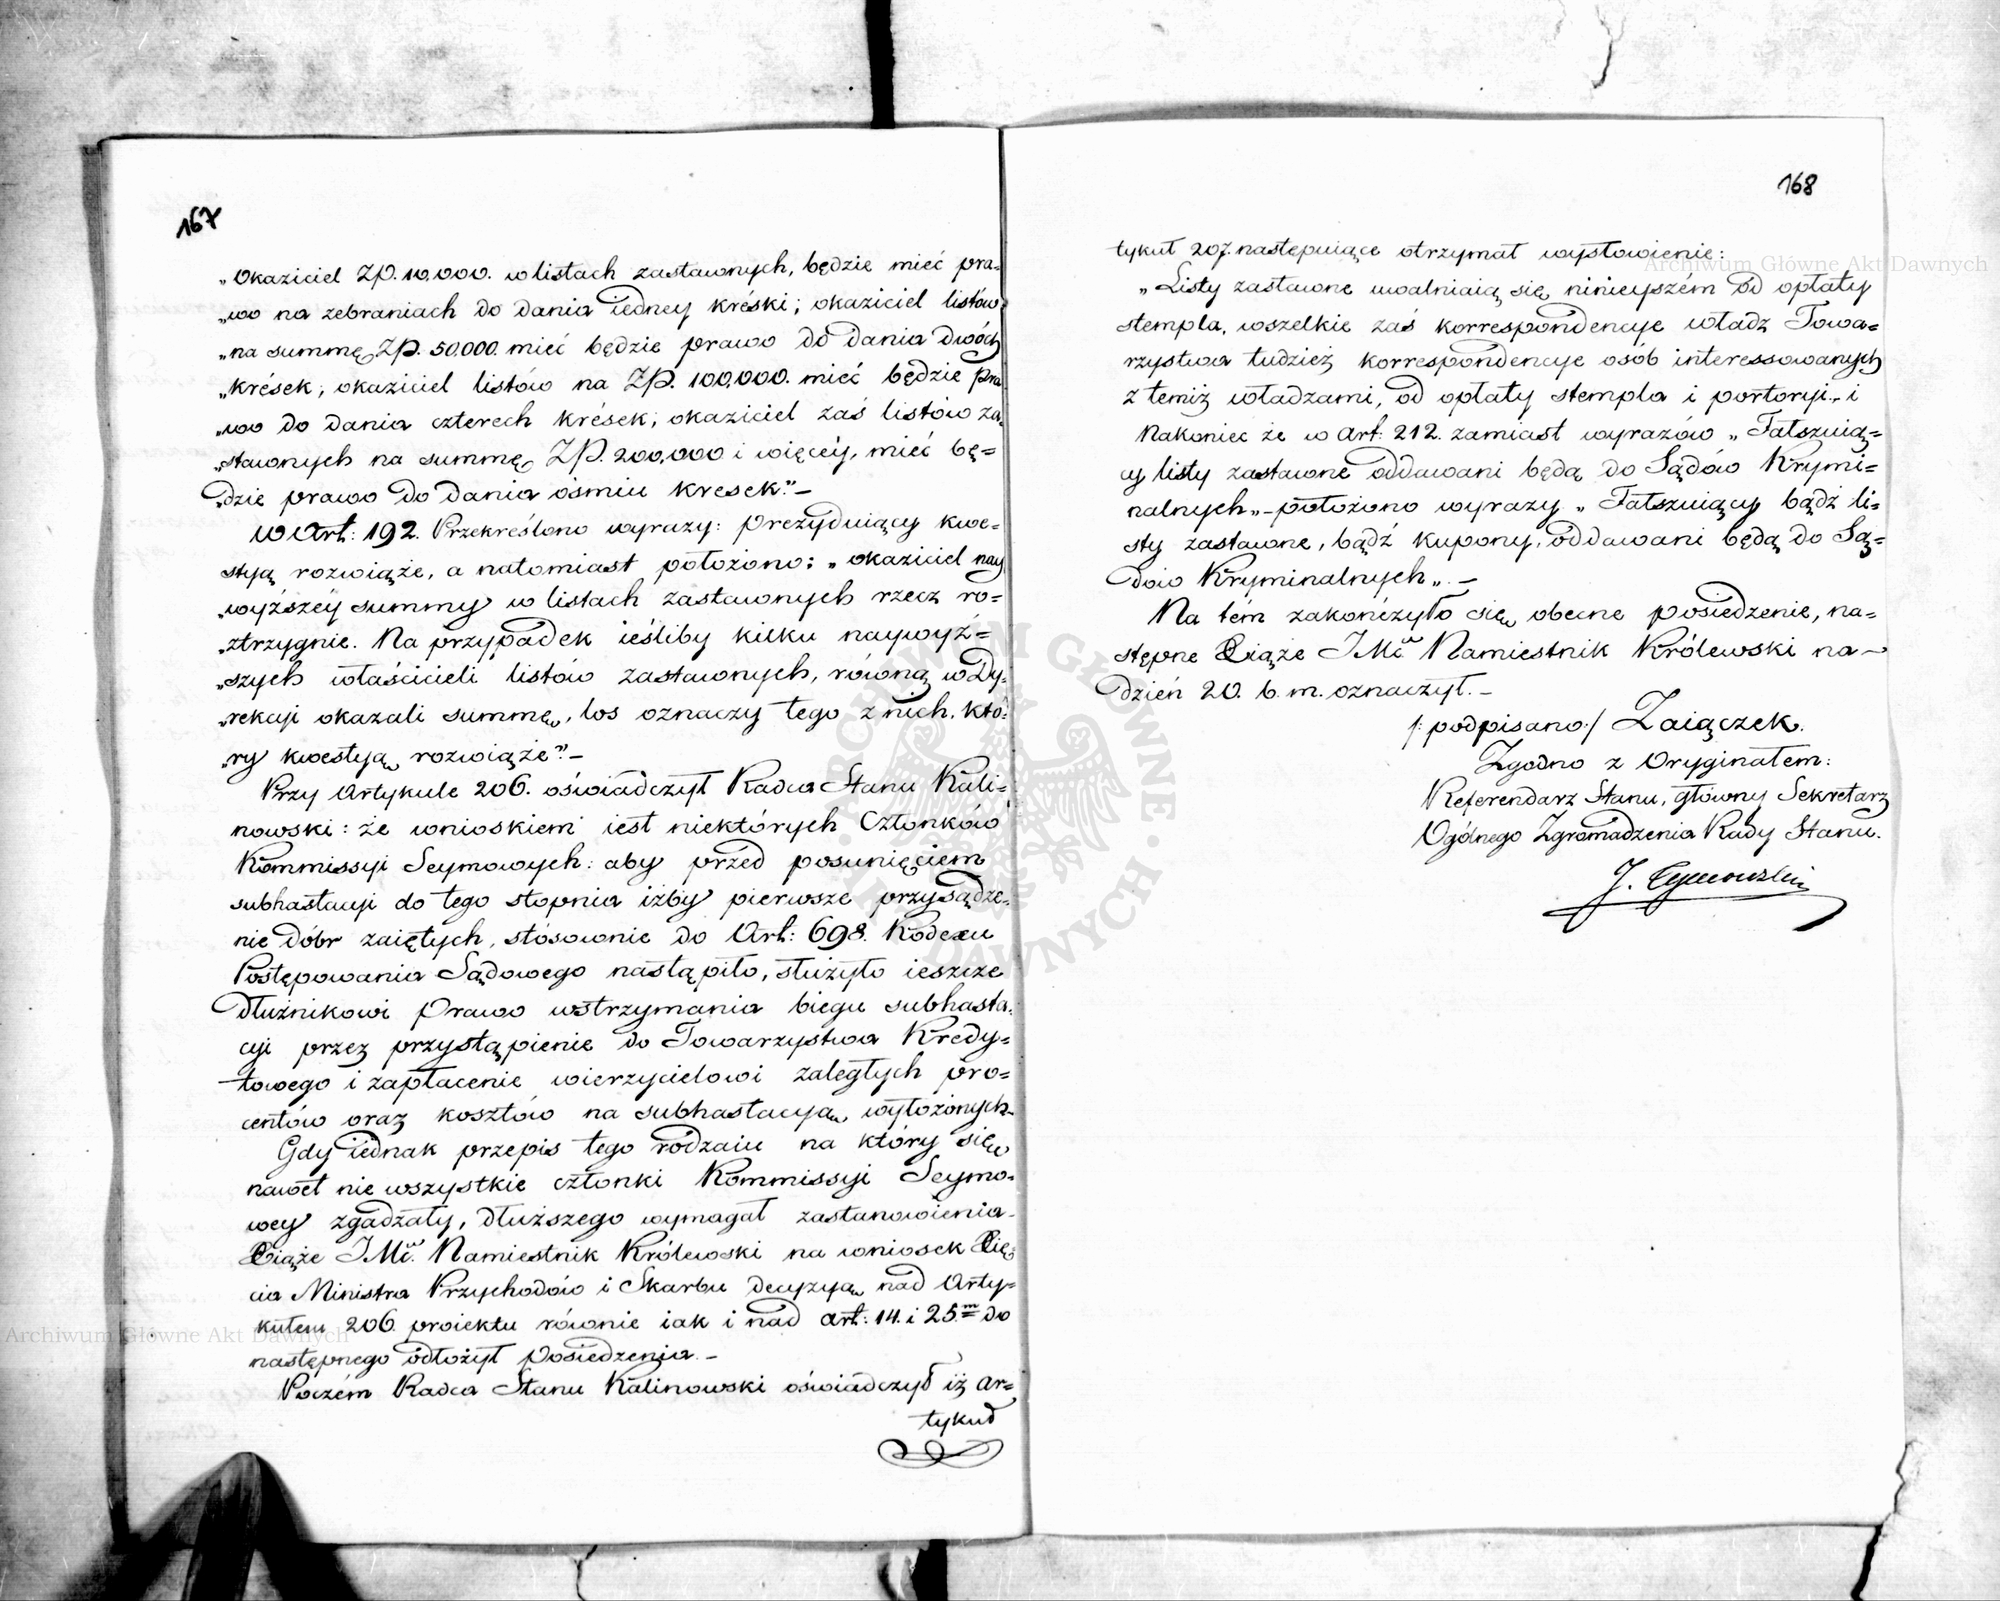 167
„Okaziciel Zƚp. 10,000. w listach zastawnych, będzie mieć pra-
„wo na zebraniach do dania iedney kréski; okaziciel listów
„na summę Zƚp. 50.000. mieć będzie prawo do dania dwóch
„krések; okaziciel listów na Zƚp. 100,000. mieć będzie pra
„wo do dania czterech krések; okaziciel zaś listów za-
„stawnych na summę Zƚp. 200,000 i więcéy, mieć bę=
„dzie prawo do dania ośmiu kresek.” –
W Art: 192. Przekreślono wyrazy: prezyduiący kwe-
styą rozwiąże, a natomiast położono: „okaziciel nay
„wyższéy summy w listach zastawnych rzecz ro=
„ztrzygnie. Na przypadek ieśliby kilku naywyż=
„szych właścicieli listów zastawnych, równą w Dy-
„rekcji okazali summę, los oznaczy tego z nich, któ-
„ry kwestyą rozwiąże”. –
Przy Artykule 206. oświadczył Radca Stanu Kali-
nowski: że wnioskiem iest niektórych Członków
Kommissyi Seymowych: aby przed posunięciem
subhastacyi do tego stopnia iżby pierwsze przysądze-
nie dóbr zaiętych, stósownie do Art: 698. Kodexu
Postępowania Sądowego nastąpiło, służyło ieszcze
dłużnikowi prawo wstrzymania biegu subhasta-
cyi przez przystąpienie do Towarzystwa Kredy=
towego i zapłacenie wierzycielowi zaległych pro=
centów oraz kosztów na subhastacyą wyłożonych.
Gdy iednak przepis tego rodzaiu na który się
nawet nie wszystkie członki Kommissyi Seymo-
wey zgadzały, dłuższego wymagał zastanowienia
Xiąże JMć. Namiestnik Królewski na wniosek Xię-
cia Ministra Przychodów i Skarbu decyzyą nad Arty-
kułem 206. proiektu równie iak i nad art: 14. i 25.m do
następnego odłożył posiedzenia. –
Poczém Radca Stanu Kalinowski oświadczył iż ar=
tykuł
168
tykuł 207. następuiące otrzymał wysłowienie:
„Listy zastawne uwalniaią się niniejszém od opłaty
stempla, wszelkie zaś korrespondencye władz Towa=
rzystwa tudzież korrespondencye osób interessowanych
z temiż władzami, od opłaty stempla i portoryi„ i
Nakoniec że w Art: 212. zamiast wyrazów „Fałszuią=
cy listy zastawne oddawani będą do Sądów Krymi=
nalnych„ – położono wyrazy „Fałszuiący bądź li-
sty zastawne, bądź kupony, oddawani będą do Są=
dów Kryminalnych„. –
Na tém zakończyło się obecne posiedzenie, na=
stępne Xiąże JMć Namiestnik Królewski na –
dzień 20. b. m. oznaczył. –
/: podpisano :/ Zaiączek.
Zgodno z Oryginałem:
Referendarz Stanu, główny Sekretarz
Ogólnego Zgromadzenia Rady Stanu.
J. Tymowski
Archiwum Główne Akt Dawnych
Archiwum Główne Akt Dawnych
ARCHIWUM GŁÓWNE · AKT DAWNYCH ·